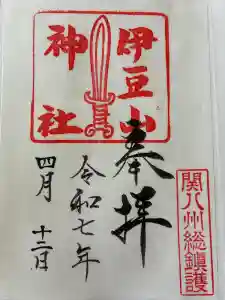 伊豆山
神社
奉拝
令和七年
四月 十二日
関八州総鎮護